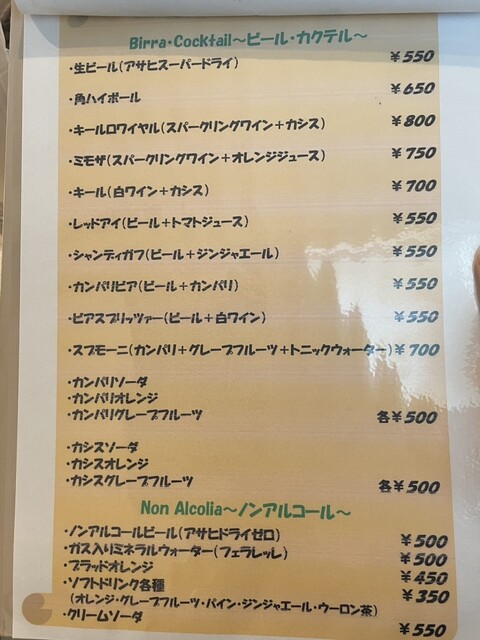 Birra・Cocktail～ビール・カクテル～
・生ビール(アサヒスーパードライ) ￥550
・角ハイボール ￥650
・キールロワイヤル(スパークリングワイン＋カシス) ￥800
・ミモザ(スパークリングワイン＋オレンジジュース) ￥750
・キール(白ワイン＋カシス) ￥700
・レッドアイ(ビール＋トマトジュース) ￥550
・シャンディガフ(ビール＋ジンジャエール) ￥550
・カンパリビア(ビール＋カンパリ) ￥550
・ビアスプリッツァー(ビール＋白ワイン) ￥550
・スプモーニ(カンパリ＋グレープフルーツ＋トニックウォーター) ￥700
・カンパリソーダ
・カンパリオレンジ
・カンパリグレープフルーツ 各￥500
・カシスソーダ
・カシスオレンジ
・カシスグレープフルーツ 各￥500
Non Alcolia～ノンアルコール～
・ノンアルコールビール(アサヒドライゼロ) ￥500
・ガス入りミネラルウォーター(フェラレッレ) ￥500
・ブラッドオレンジ ￥450
・ソフトドリンク各種 ￥350
(オレンジ・グレープフルーツ・パイン・ジンジャエール・ウーロン茶)
・クリームソーダ ￥550